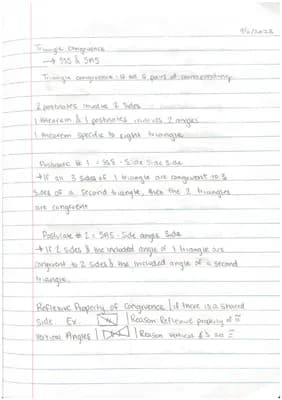 9/6/2023
Triangle congruence
→ SSS & SAS
Triangle congruence - 6 pairs of corresponding
2 postulates involve 2 sides
1 theorem & 1 postulates involves 2 angles
1 theorem specific to right triangle
Postulate # 1 = SSS - Side Side Side
→ If all 3 sides of 1 triangle are congruent to 3
sides of a second triangle, then the 2 triangles
are congruent
Postulate # 2 = SAS - Side angle Side
→ If 2 sides & the included angle of 1 triangle are
congruent to 2 sides & the included angle of a second
triangle.
Reflexive Property of congruence | if there is a shared
side. Ex. | Reason: Reflexive property of ≅
Vertical Angles | | Reason vertical ∠s are ≅